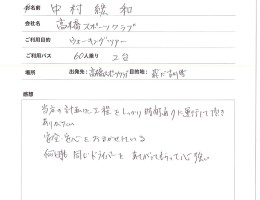 お名前 中村 和
会社名 高橋スポーツクラブ
ご利用目的 ウォーキングツアー
ご利用バス 60人乗り 2台
場所 出発先: 高橋スポーツクラブ 目的地:
感想
当方の計画した工程をしっかり時間通りに運行して頂き
ありがたい
安全安心をおまかせている
何回も同じドライバーを